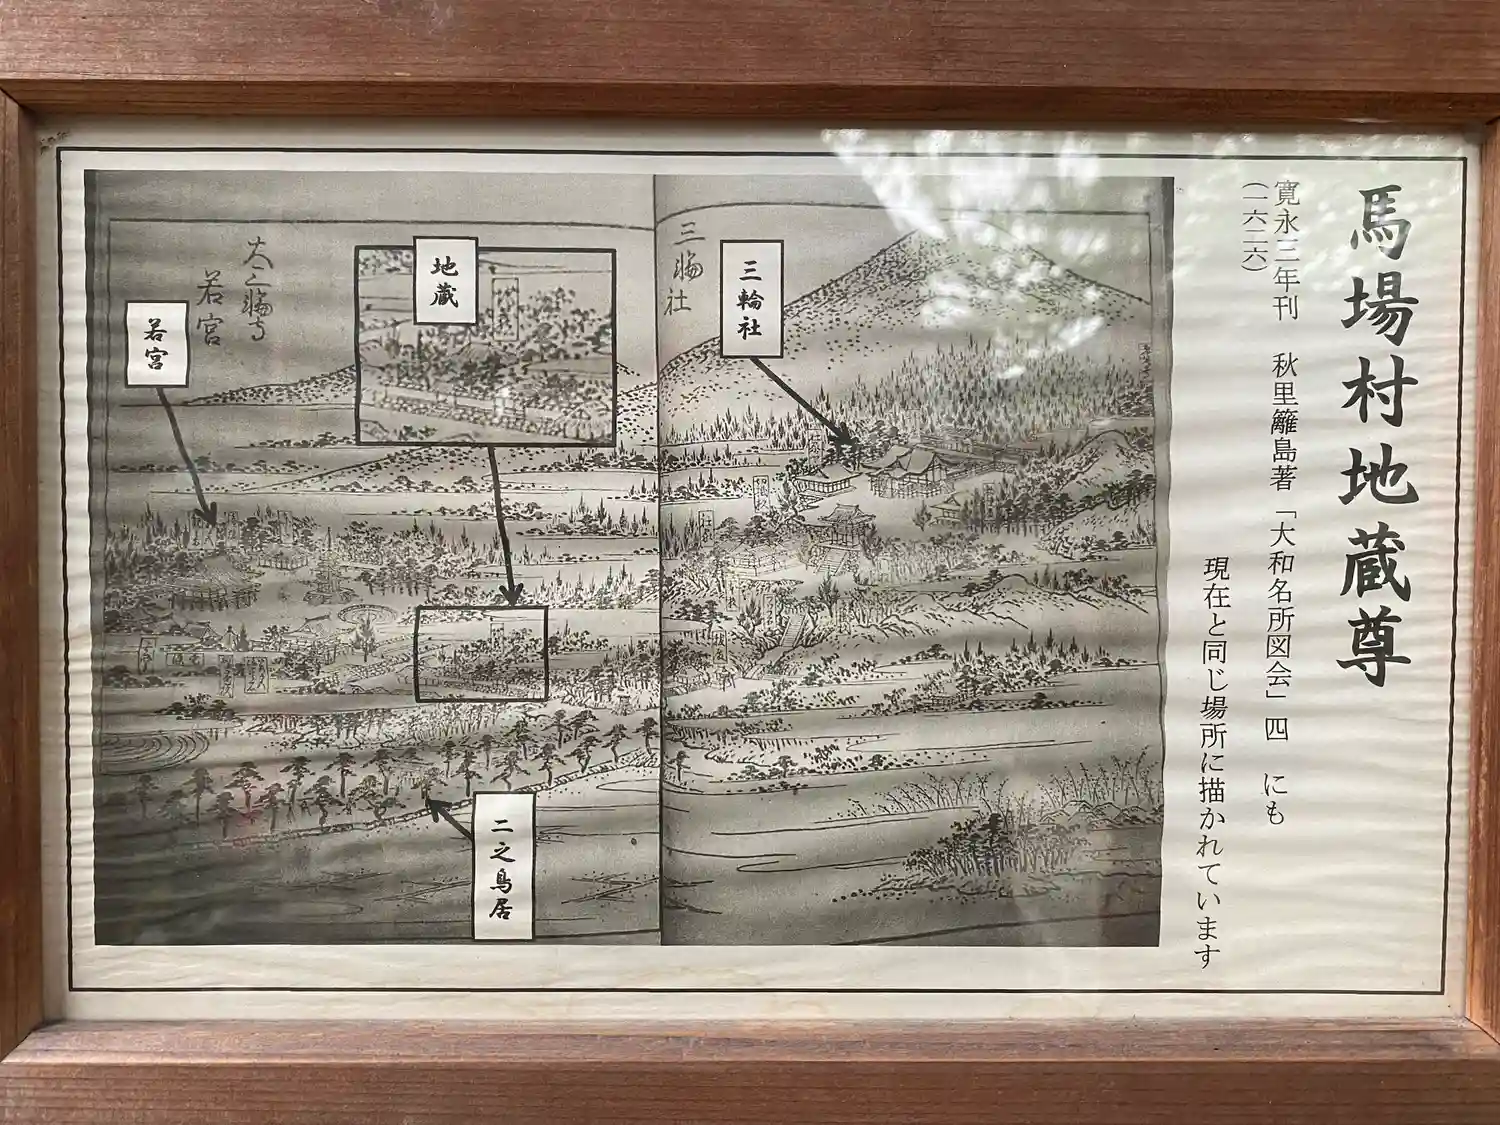 馬場村地蔵尊
寛永三年刊　秋里籬島著「大和名所図会」四　にも
（一六二六）
現在と同じ場所に描かれています
三輪社
三輪社
地蔵
大三輪寺
若宮
若宮
二之鳥居